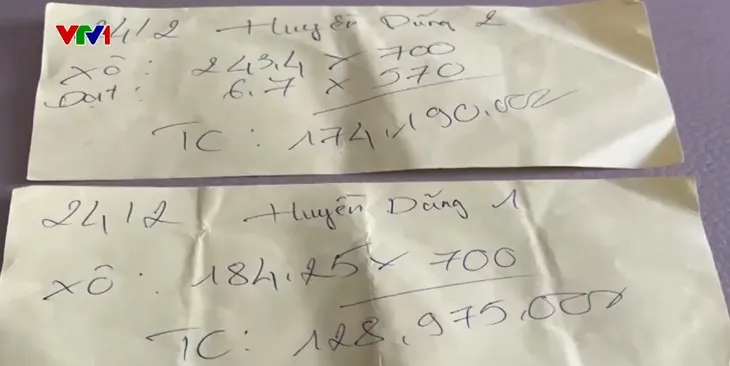 VTV1
24/2 Huyền Dũng 2
Xô: 243,4 x 700
Dạt: 6,7 x 570
TC: 174,190.000
24/2 Huyền Dũng 1
Xô: 184,25 x 700
TC: 128,975.000